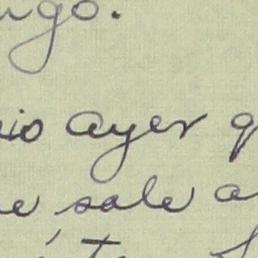 ngo.
io ayer q
e sale a